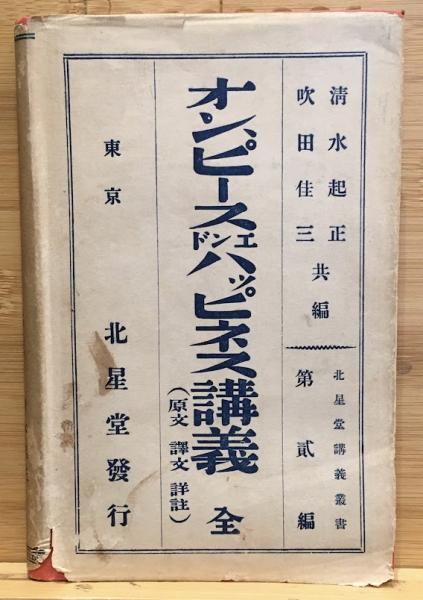 清水起正
吹田佳三
共編
北星堂講義叢書
第貳編
オン、ピースエンドハッピネス講義
全
(原文 譯文 詳註)
東京
北星堂發行